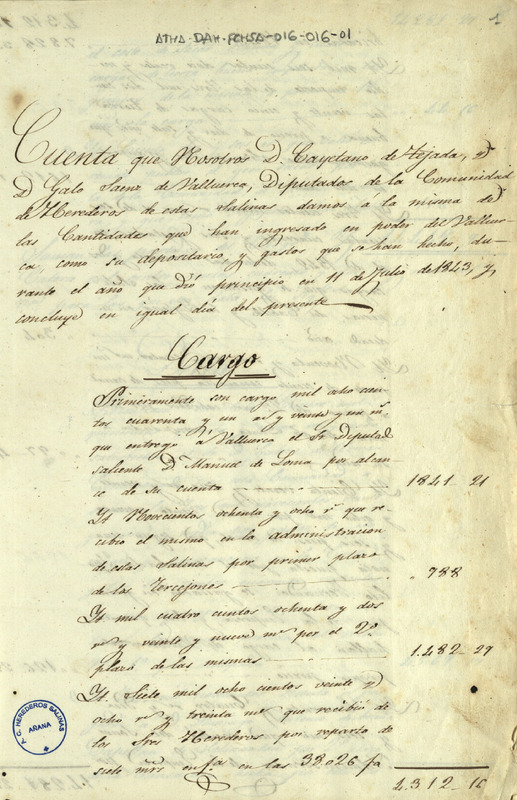 1
ATHA-DAH-FCHSA-016-016-01
Cuenta que Nosotros D. Cayetano de Tejada, y
D Galo Saenz de Valluerca, Diputados de la Comunidad
de Herederos de estas Salinas damos a la misma de
las Cantidades que han ingresado en poder del Valluer-
ca, como su depositario, y gastos que se han hecho, du-
rante el año que dió principio en 11 de Julio de 1843, y
concluye en igual dia del presente
Cargo
Primeramente son cargo mil ocho cien-
tos cuarenta y un rs y veinte y un ms
que entregó á Valluerca el Sr Diputado
saliente D. Manuel de Loma por alcan-
ce de su cuenta 1841-21
It Novecientos ochenta y ocho rs que re-
cibió el mismo en la administracion
de estas Salinas por primer plazo
de los Tercejones 988
It mil cuatro cientos ochenta y dos
rs y veinte y nueve ms por el 2º
plazo de las mismas 1.482-29
It Siete mil ocho cientos veinte y
ocho rs y treinta ms que recibió de
los Sres Herederos por reparto de
siete mrs en fa en las 38.026 fa
4.312-16
P. G. HEREDEROS SALINAS
ARANA